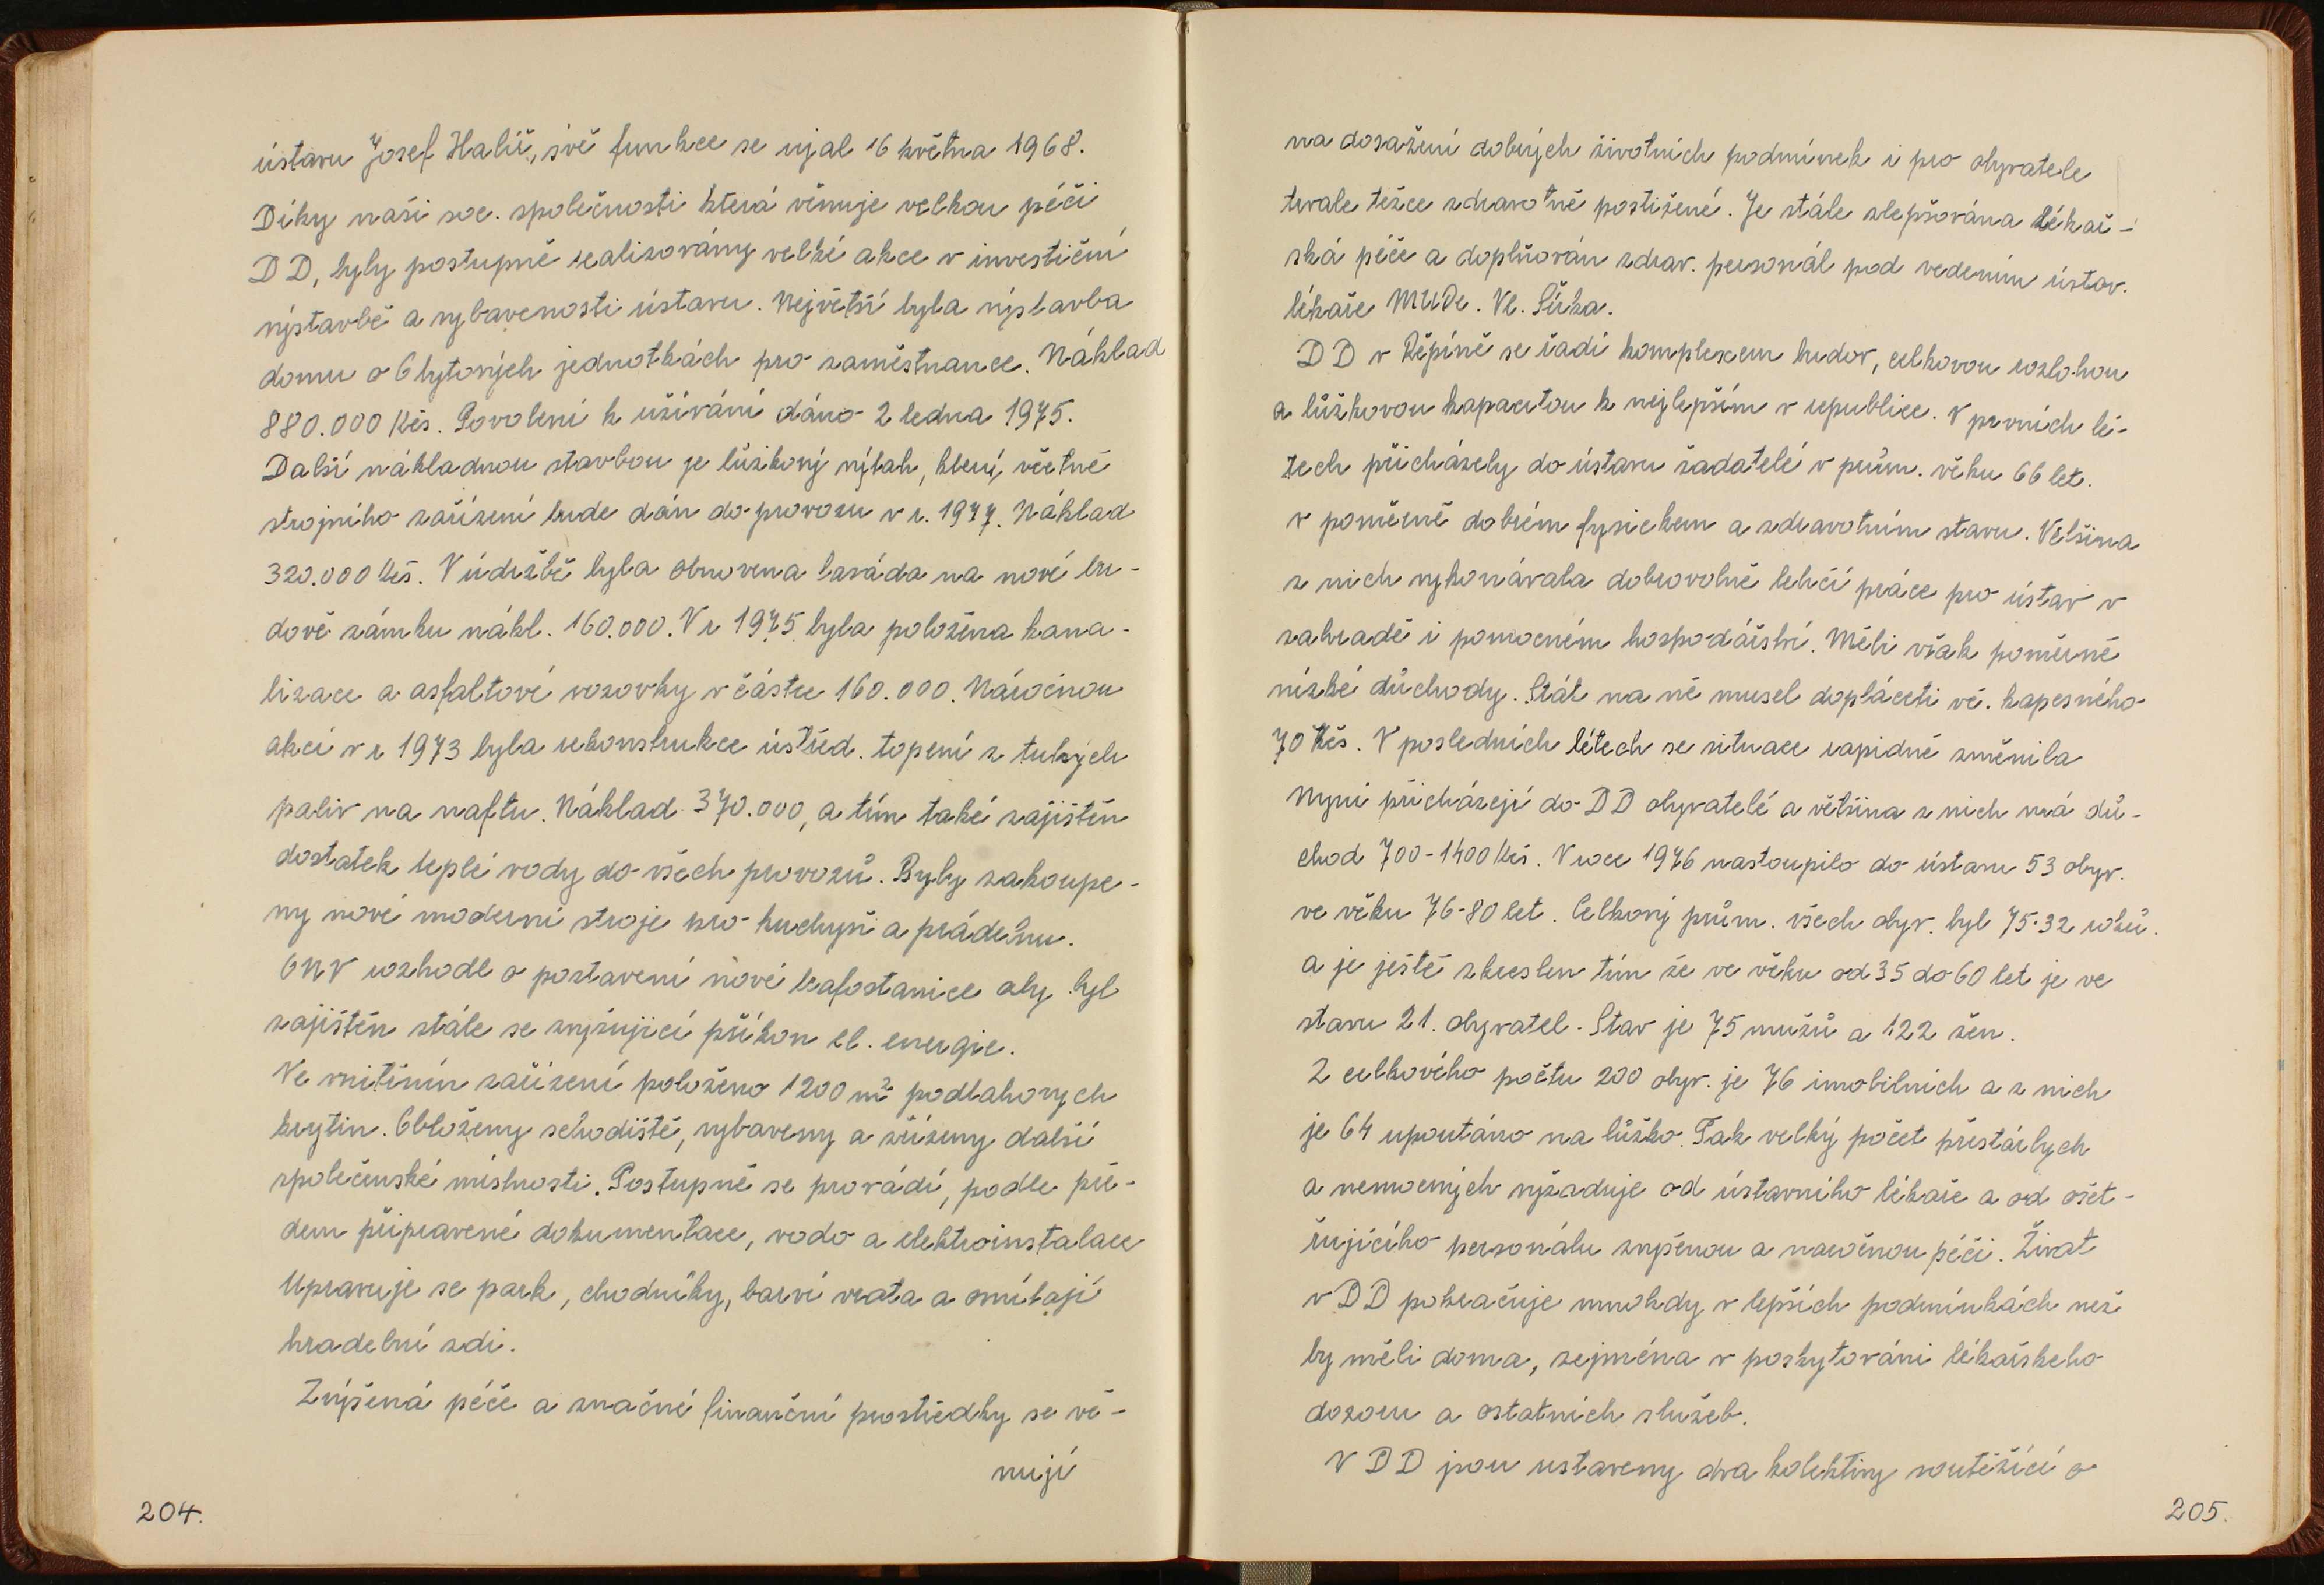 ústavu Josef Halíř, své funkce se ujal 16 května 1968.
Díky naši soc. společnosti která věnuje velkou péči
DD, byly postupně realizovány velké akce v investiční
výstavbě a vybavenosti ústavu. Největší byla výstavba
domu o 6 bytových jednotkách pro zaměstnance. Náklad
880.000 Kčs. Povolení k užívání dáno 2 ledna 1975.
Další nákladnou stavbou je lůžkový výtah, který včetně
strojního zařízení bude dán do provozu v r. 1977. Náklad
320.000 Kčs. V údržbě byla obnovena fasáda na nové bu-
dově zámku nákl. 160.000. V r 1975 byla položena kana-
lizace a asfaltové vozovky v částce 160.000. Náročnou
akcí v r 1973 byla rekonstrukce ústřed. topení z tuhých
paliv na naftu. Náklad 370.000, a tím také zajištěn
dostatek teplé vody do všech provozů. Byly zakoupe-
ny nové moderní stroje pro kuchyň a prádelnu.
ONV rozhodl o postavení nové trafostanice aby byl
zajištěn stále se zvyšující příkon el. energie.
Ve vnitřním zařízení položeno 1200 m² podlahových
krytin. Obloženy schodiště, vybaveny a zřízeny další
společenské místnosti. Postupně se provádí, podle pře-
dem připravené dokumentace, vodo a elektroinstalace
Upravuje se park, chodníky, barví vrata a omítají
hradební zdi.
Zvýšená péče a značné finanční prostředky se vě-
nují
204.
na dosažení dobrých životních podmínek i pro obyvatele
trvale těžce zdravotně postižené. Je stále zlepšována lékař-
ská péče a doplňován zdrav. personál pod vedením ústav.
lékaře MUDr. Vl.
DD v Řepíně se řadí komplexem budov, celkovou rozlohou
a lůžkovou kapacitou k nejlepším v republice. V prvních lé-
tech přicházely do ústavu žadatelé v prům. věku 66 let.
v poměrně dobrém fysickem a zdravotním stavu. Většina
z nich vykonávala dobrovolně lehčí práce pro ústav v
zahradě i pomocném hospodářství. Měli však poměrně
nízké důchody. Stát na ně musel dopláceti vč. kapesného
70 Kčs. V posledních létech se situace rapidně změnila
Nyní přicházejí do DD obyvatelé a většina z nich má dů-
chod 700-1400 Kčs. V roce 1976 nastoupilo do ústavu 53 obyv.
ve věku 76-80 let. Celkový prům. všech obyv. byl 75.32 roků.
a je ještě zkreslen tím že ve věku od 35 do 60 let je ve
stavu 21. obyvatel. Stav je 75 mužů a 122 žen.
Z celkového počtu 200 obyv. je 76 imobilních a z nich
je 64 upoutáno na lůžko. Tak velký počet přestárlych
a nemocných vyžaduje od ústavního lékaře a od ošet-
řujícího personálu zvyšenou a naročnou péči. Život
v DD pokračuje mnohdy v lepších podmínkách než
by měli doma, zejména v poskytování lékařskeho
dozoru a ostatních služeb.
V DD jsou ustaveny dva kolektivy soutěžící o
205.